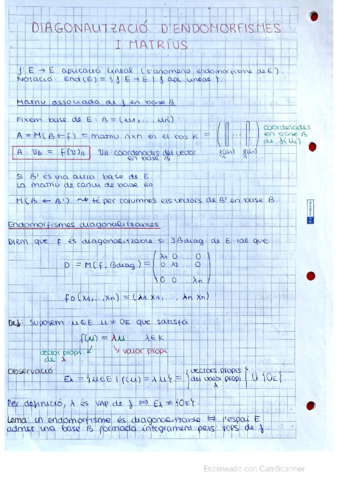 DIAGONALITZACIÓ D'ENDOMORFISMES
I MATRIUS
f: E → E aplicació lineal (s'anomena endomorfisme de E).
Notació: End(E) = { f: E → E | f apl. lineals }.
Matriu associada de f en base B
Fixem base de E: B = (u₁, ..., uₙ)
A = M(B ← f) = matriu n×n en el cos K =
coordenades
en base B
de f(uᵢ)
f(u₁) f(uₙ)
A · v_B = f(v)_B
v_B: coordenades del vector
en base B
Si B' és una altra base de E
La matriu de canvi de base és
M(B ← B') ↝ té per columnes els vectors de B' en base B.
Endomorfismes diagonalitzables
Diem que f és diagonalitzable si ∃ Bdiag de E tal que
D = M(f, Bdiag) = (λ₁ 0 ... 0
0 λ₂ ... 0
0 0 λₙ)
f_D(x₁, ..., xₙ) = (λ₁x₁, ..., λₙxₙ)
Def: Suposem u∈E u ≠ 0_E que satisfà
f(u) = λu λ∈K
vector propi
de λ
valor propi
Observació
E_λ = { u∈E | f(u) = λu } = { vectors propis
del valor propi
λ } ∪ {0_E}
Per definició, λ és VAP de f ⟺ E_λ ≠ {0_E}.
Lema: un endomorfisme és diagonalitzable ⟺ l'espai E
admet una base B formada íntegrament pels VEPS de f.
Escaneado con CamScanner